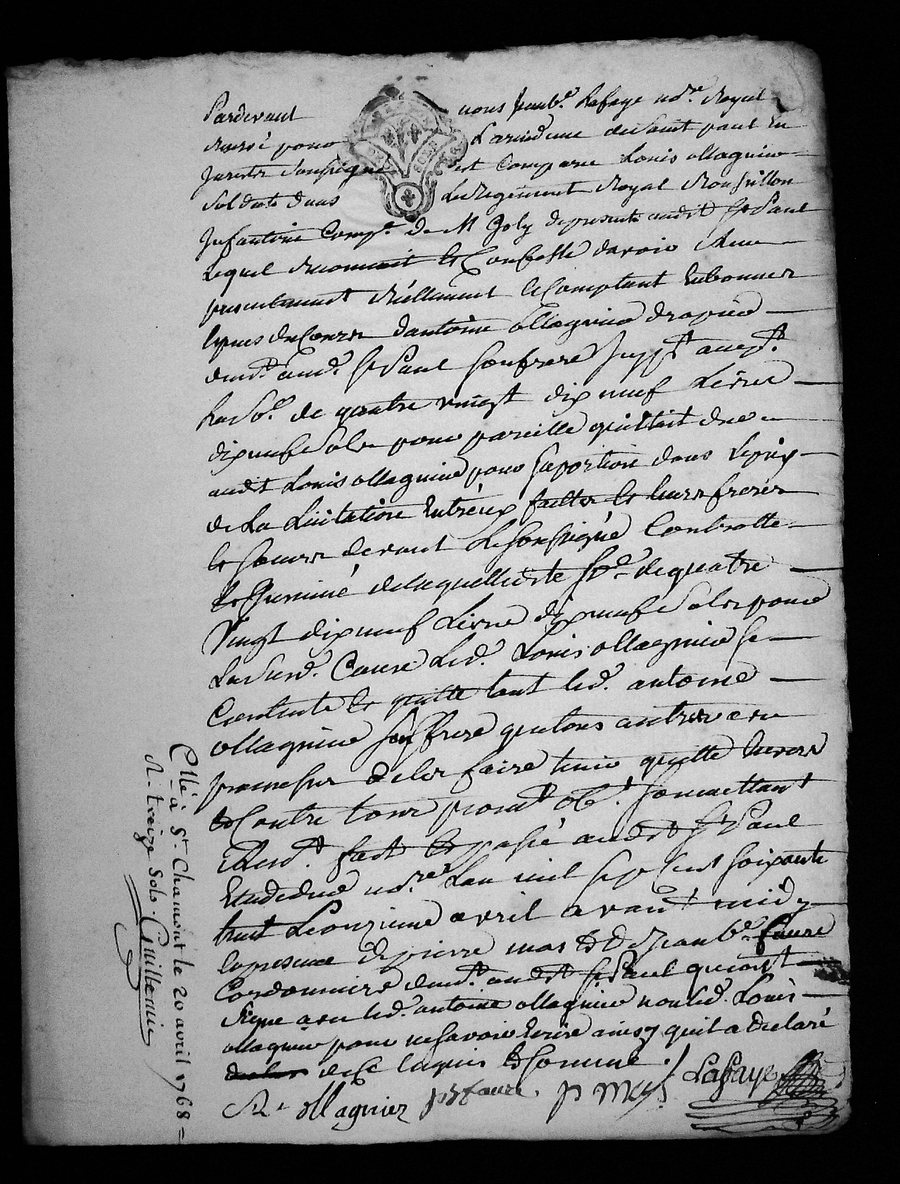 Pardevant nous Jean b.e Lafaye no.re Royal
reservé pour La residence de Saint paul En
Jarestz Soussigné est Comparu Louis ollagnier
Soldat dans Le Regiment Royal Roussillon
Infanterie Comp.e De M Joly de presents audit St Paul
Lequel reconnait & Confesse davoir Receu
presentement Réellement & Comptant En bonnes
especes de Cours d'antoine ollagnier
dem.t aud. St Paul Son frere
La So.e de quatre vingt dix neuf Livres
dix neuf Sols pour pareille quil etoit due
audit Louis ollagnier pour Sa portion dans Le prix
de La Licitation Entréux faitte & leurs freres
& Soeurs devant Le Soussigné Controllé
& Insinué de laquelle ditte So.e de quatre
Vingt dix neuf Livre dix neuf Sols pour
La Susd. Cause Led. Louis ollagnier Se
Contente & quitte tant led. antoine
ollagnier Son frere que tous autres avec
promesse de les faire tenir quitte Envers
& Contre tous ob. Soumettant
fait & passé audit St Paul
Etude dud. no.re Lan mil sept cent soixante
huit Le onzieme avril avant midy
En presence de pierre mas & de Jean b.e faure
Cordonniers dem.t audit St Paul qui ont
Signe avec led. antoine ollagnier non led. Louis
ollagnier pour ne Savoir Ecrire ainsy quil a declaré
de Ce Enquis & Somme.
ollagnier jb faure p mas Lafaye
Cllé à St. Chamont le 20 avril 1768
R. treize Sols. Guillemin